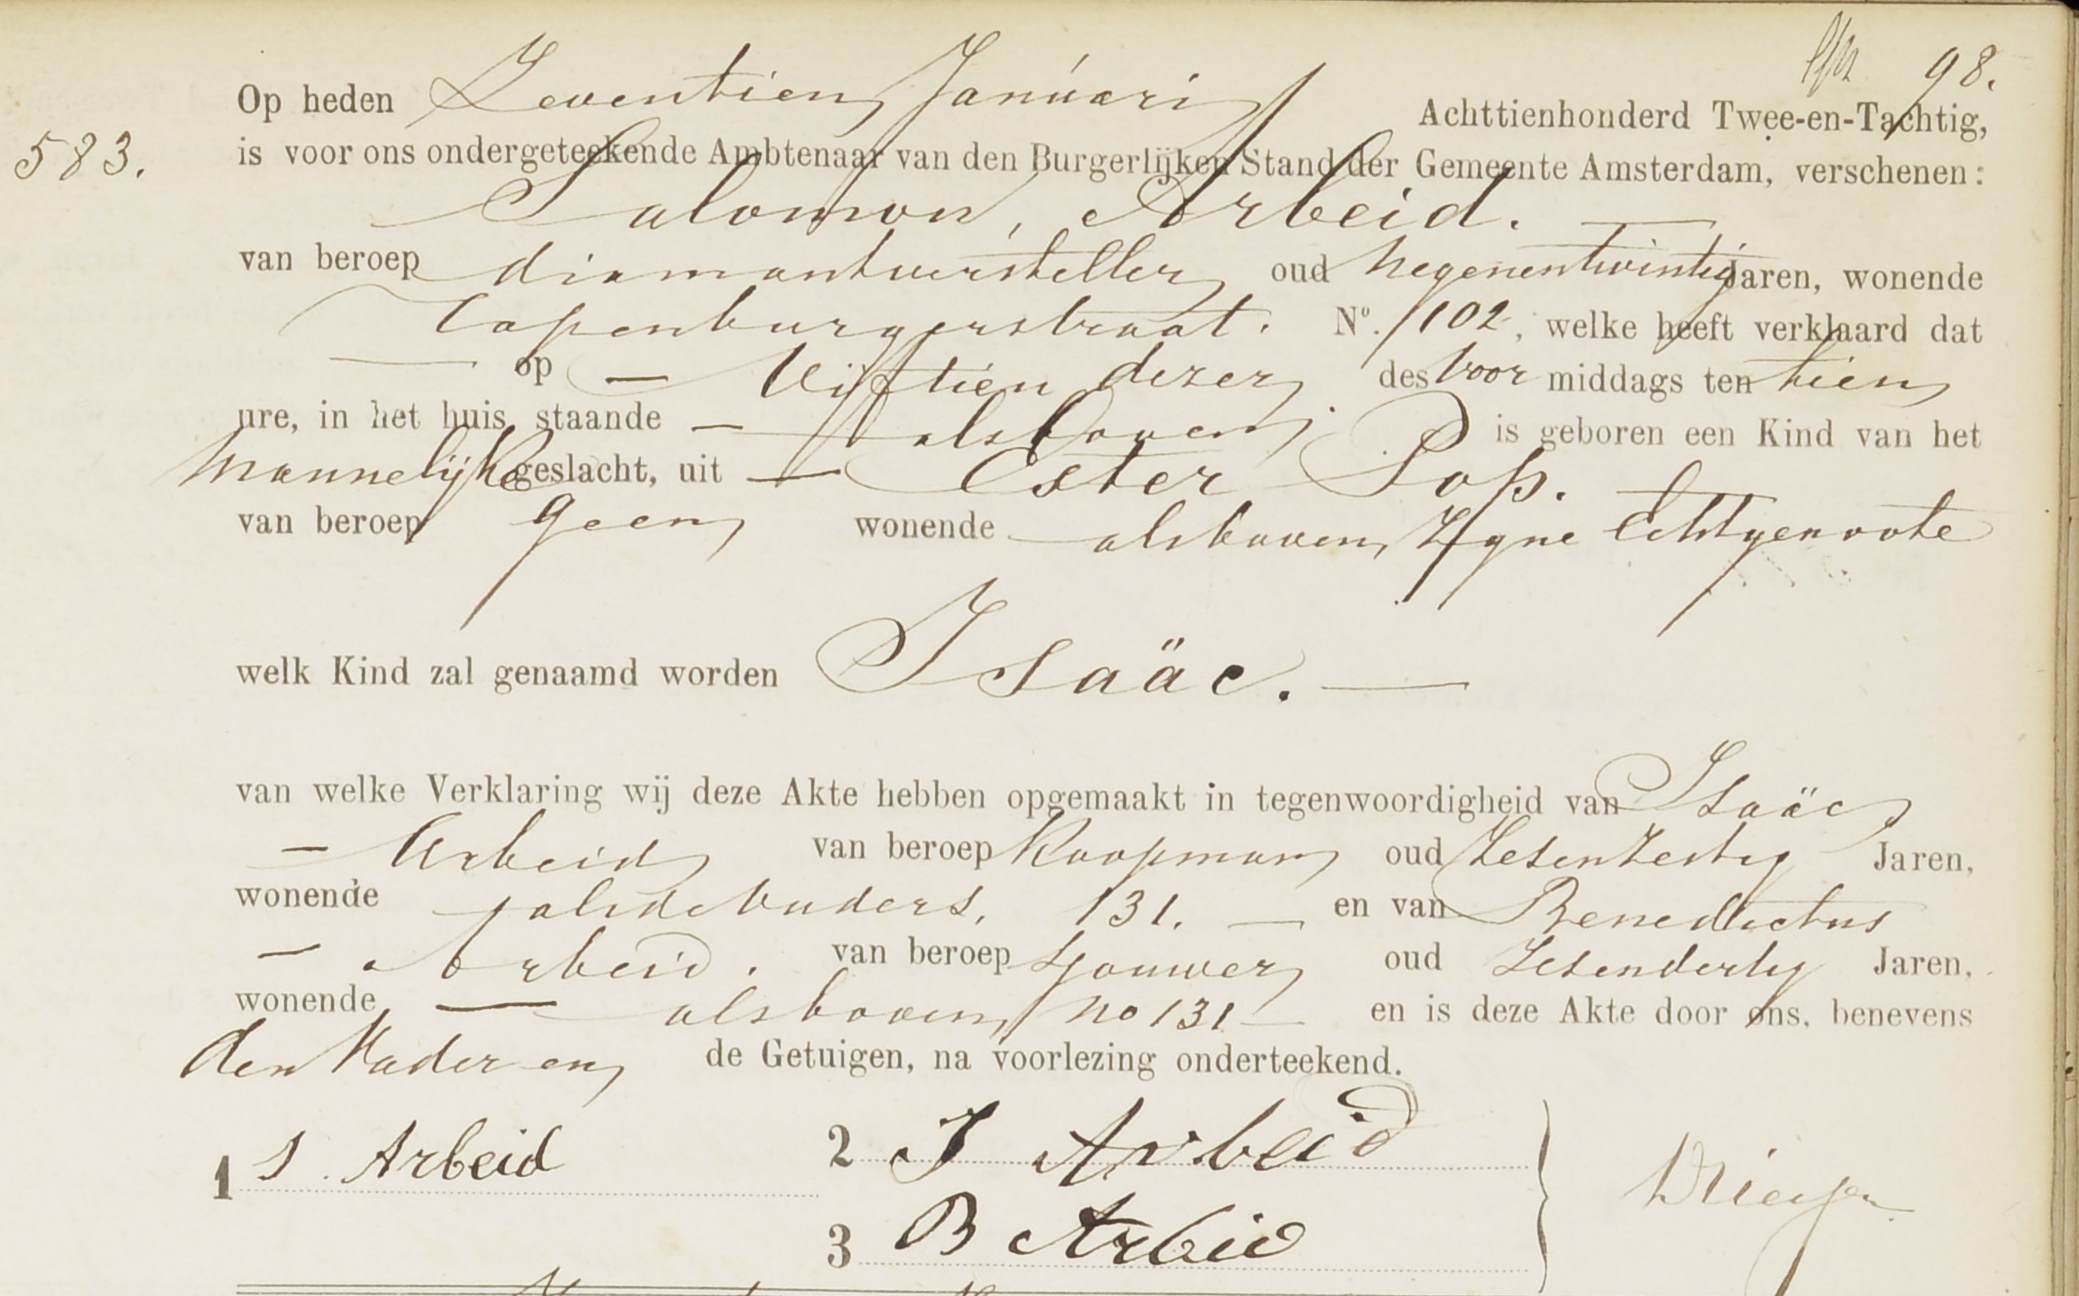 98.
583.
Op heden Zeventien Januari Achttienhonderd Twee-en-Tachtig,
is voor ons ondergeteekende Ambtenaar van den Burgerlijken Stand der Gemeente Amsterdam, verschenen:
Salomon, Arbeid.
van beroep diamantversteller oud Negenentwintig Jaren, wonende
Uilenburgerstraat. Nº. 102, welke heeft verklaard dat
op — Vijftien dezer des voor middags ten tien
ure, in het huis staande — alsboven is geboren een Kind van het
Mannelijke geslacht, uit — Ester Pop.
van beroep Geen wonende alsboven, Zijne Echtgenoote
welk Kind zal genaamd worden Isaäc. —
van welke Verklaring wij deze Akte hebben opgemaakt in tegenwoordigheid van Isaäc
— Arbeid van beroep Koopman oud Zesenzestig Jaren,
wonende 131. — en van Benedictus
— Arbeid. van beroep Sjouwer oud Zesendertig Jaren,
wonende — alsboven, no 131 — en is deze Akte door ons, benevens
den Vader en de Getuigen, na voorlezing onderteekend.
1 S Arbeid 2 I Arbeid
3 B Arbeid